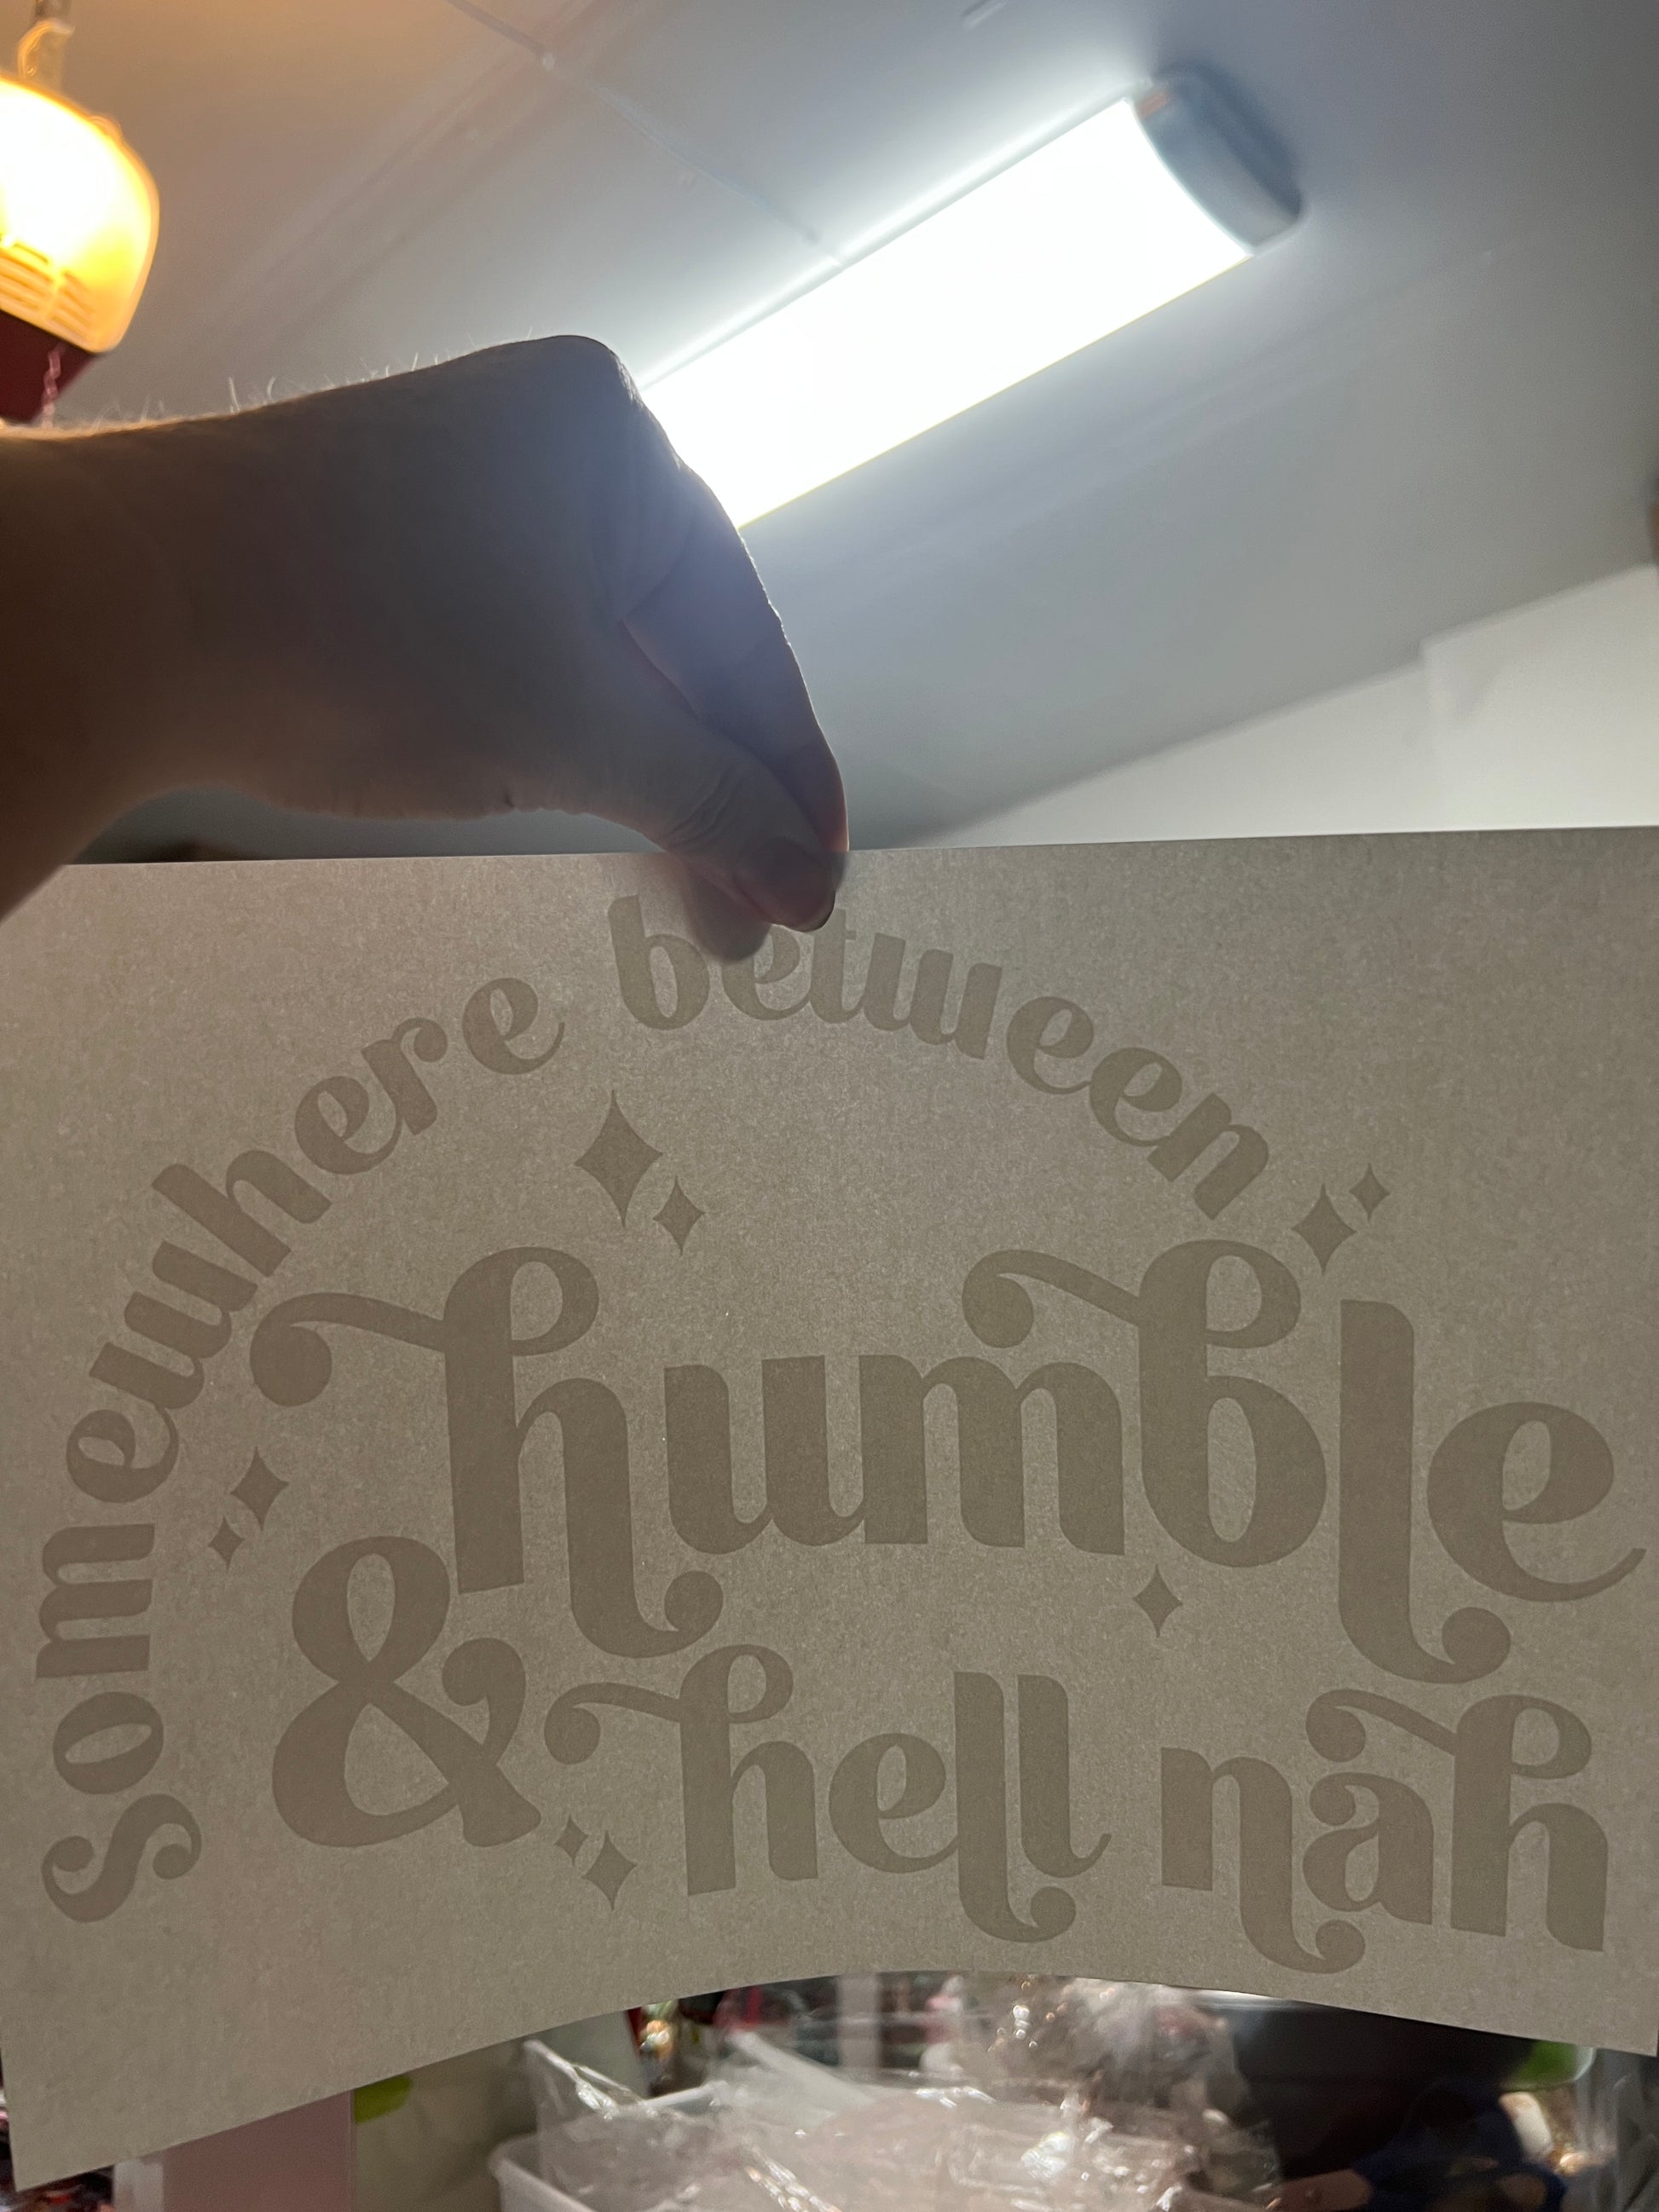 somewhere between
humble
& hell nah